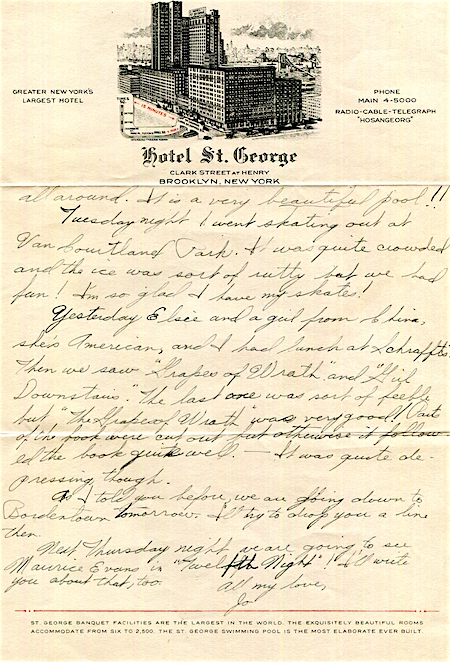 GREATER NEW YORK'S
LARGEST HOTEL
PHONE
MAIN 4-5000
RADIO-CABLE-TELEGRAPH
"HOSANGEORG"
15 MINUTES
Hotel St. George
CLARK STREET AT HENRY
BROOKLYN, NEW YORK
all around. It is a very beautiful pool!!
Tuesday night I went skating out at
Van Courtland Park. It was quite crowded
and the ice was sort of rutty but we had
fun! I'm so glad I have my skates!
Yesterday Elsie and a girl from China,
she's American, and I had lunch at Schrafft's.
Then we saw "Grapes of Wrath" and "Girl
Downstairs." The last one was sort of feeble
but "The Grapes of Wrath" was very good! Parts
of the book were cut out but otherwise it follow
ed the book quite well — It was quite de-
pressing though.
As I told you before, we are going down to
Bordentown tomorrow — I'll try to drop you a line
then.
Next Thursday night we are going to see
Maurice Evans in "Twelfth Night"! I'll write
you about that, too.
All my love,
Jo
ST. GEORGE BANQUET FACILITIES ARE THE LARGEST IN THE WORLD. THE EXQUISITELY BEAUTIFUL ROOMS
ACCOMMODATE FROM SIX TO 2,500. THE ST. GEORGE SWIMMING POOL IS THE MOST ELABORATE EVER BUILT.